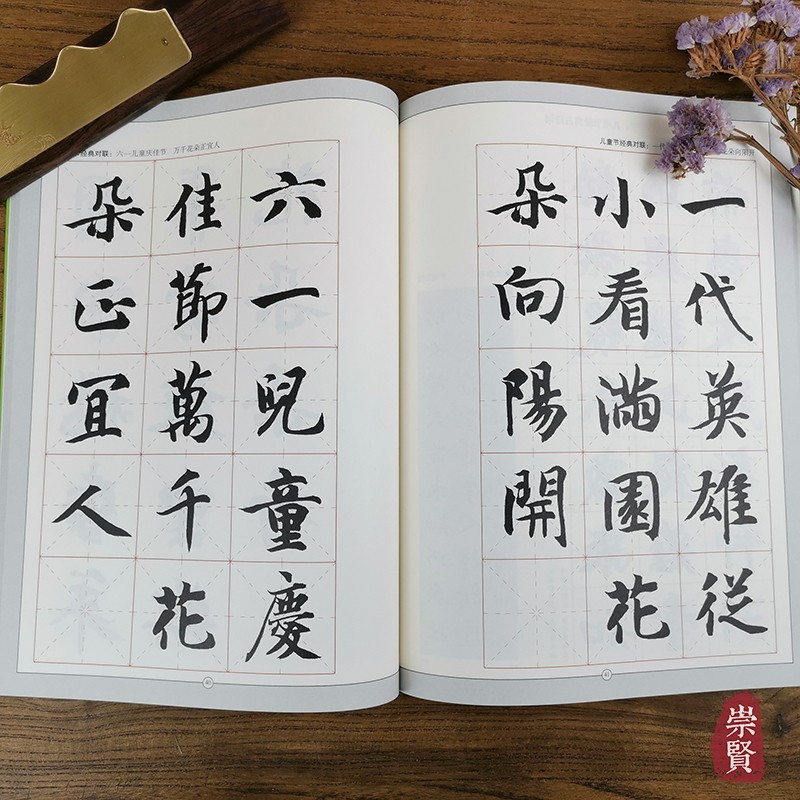 经典对联：六一儿童庆佳节 万千花朵正宜人
六一兒童慶
佳節萬千花
朵正宜人
40
儿童节经典对联：一代
朵向阳开
一代英雄從
小看滿園花
朵向陽開
41
崇賢